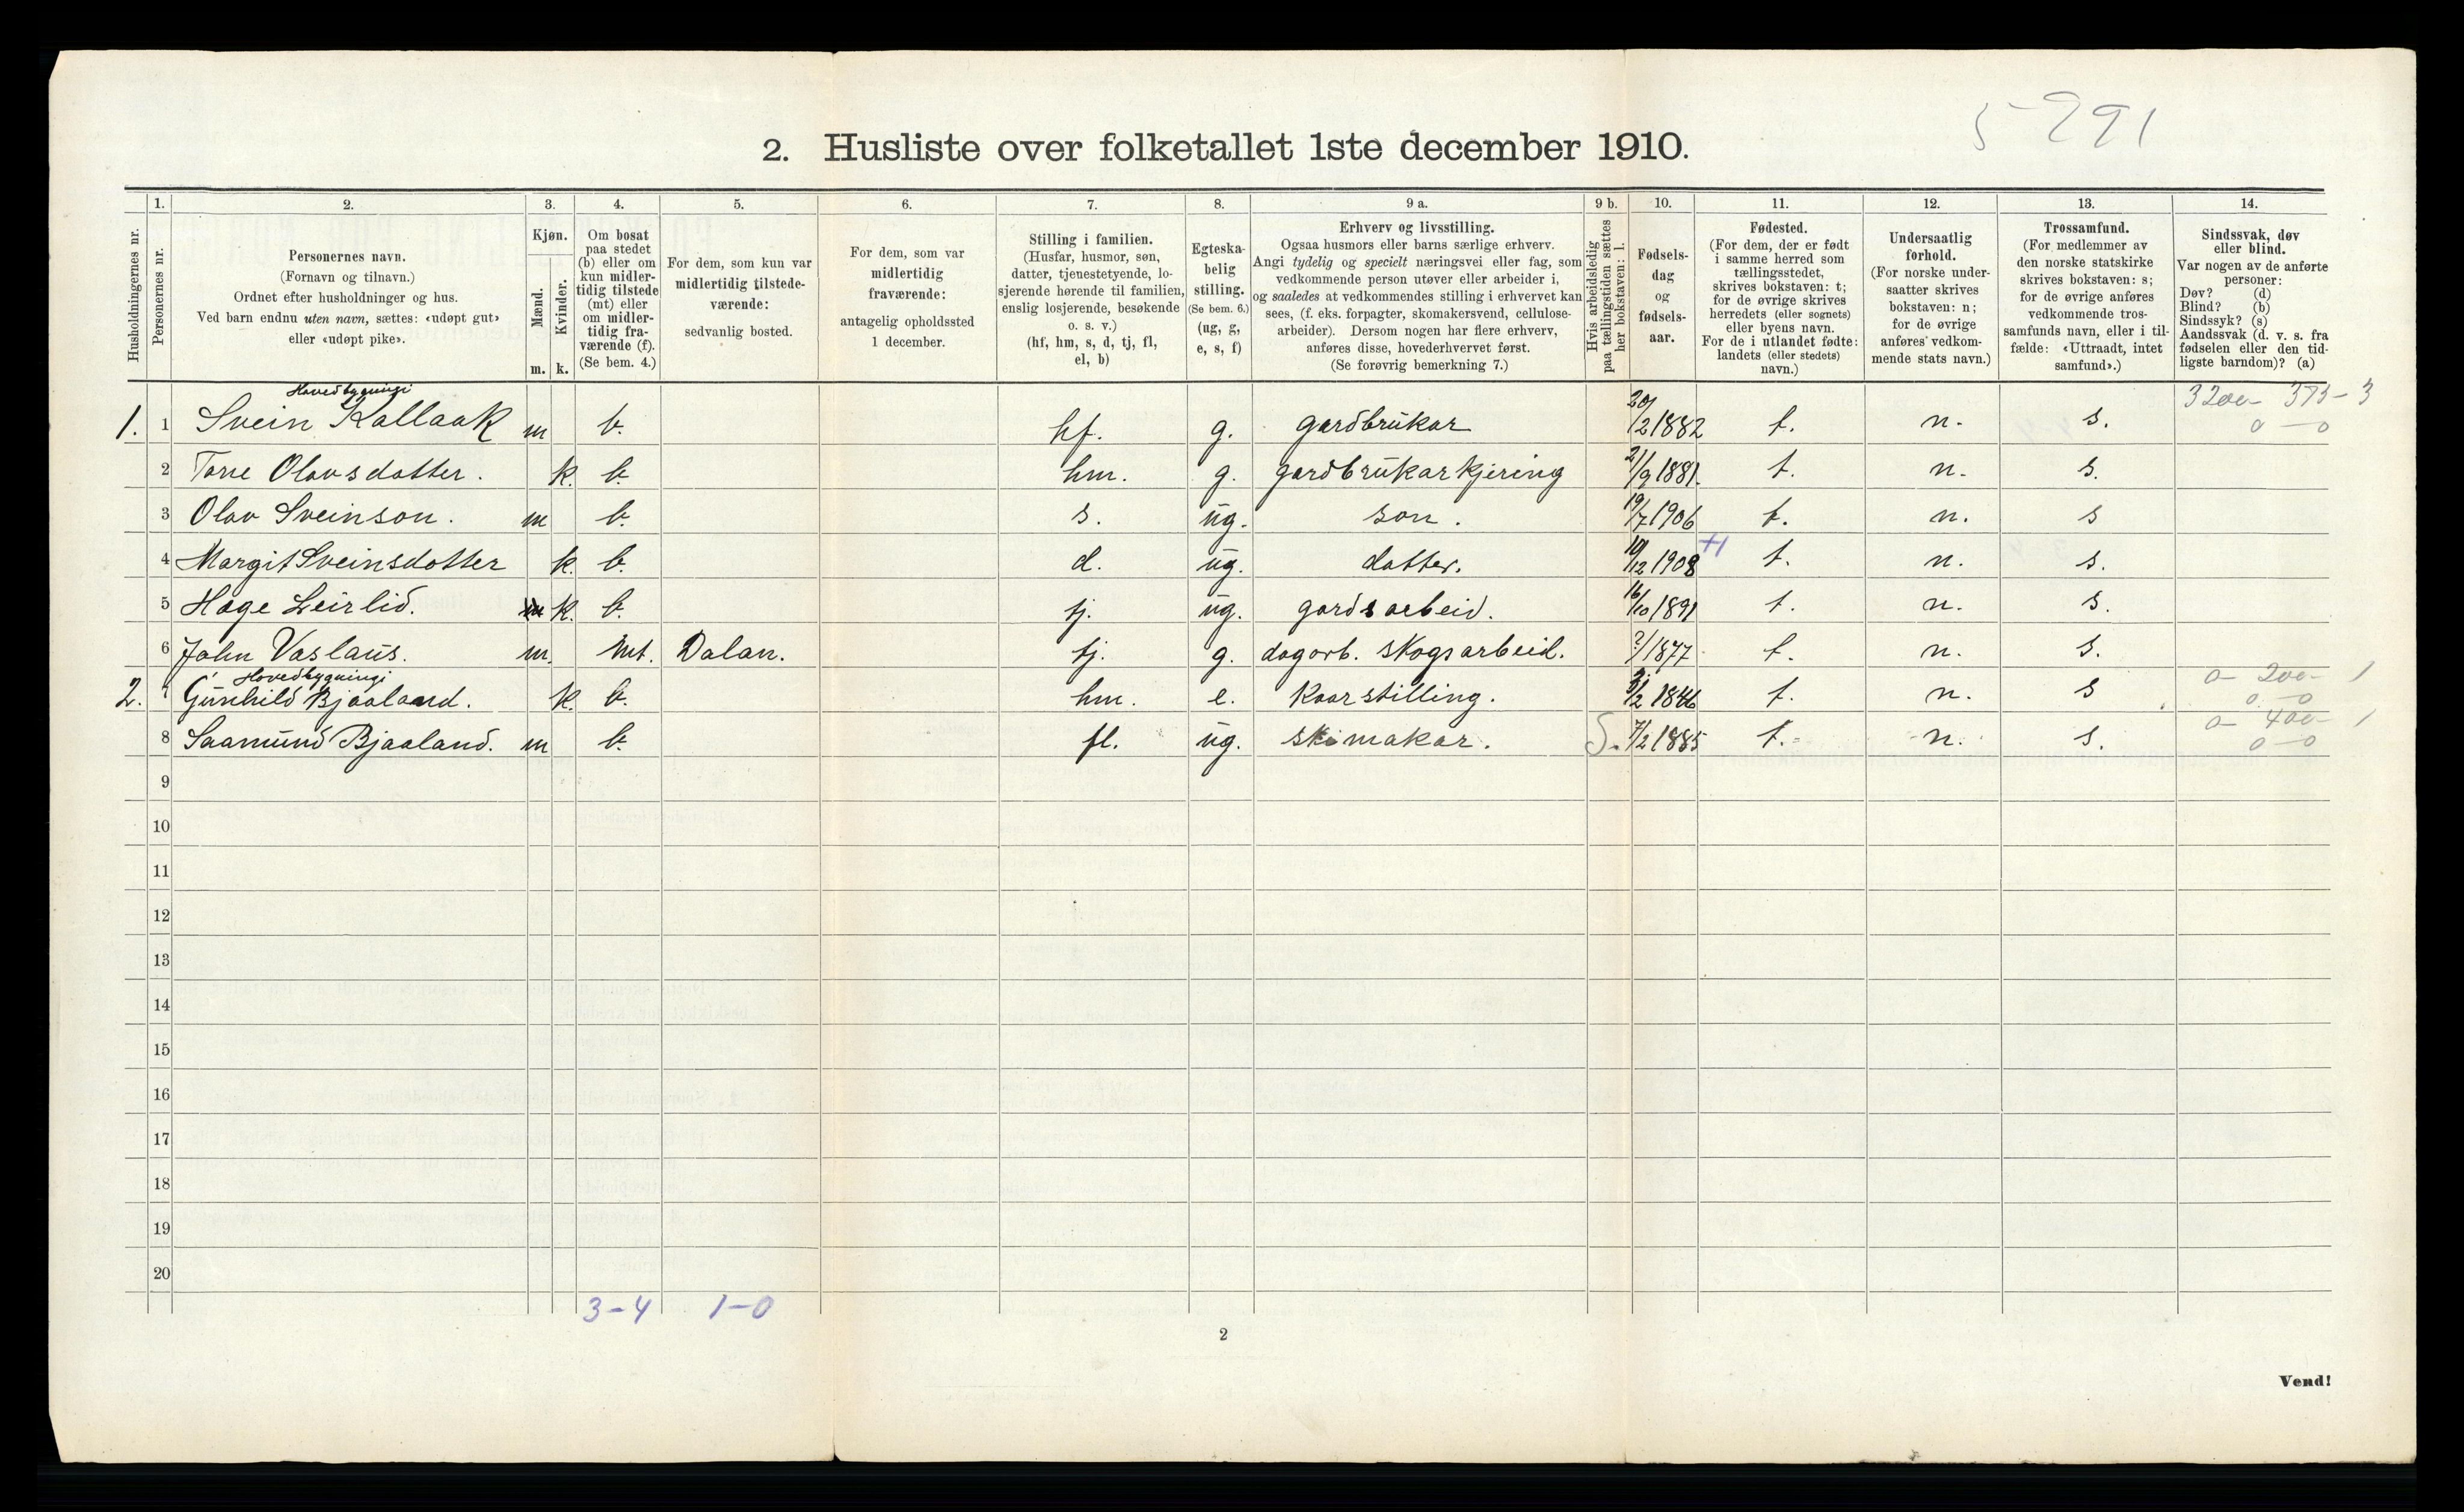 5-291
2. Husliste over folketallet 1ste december 1910.
Husholdningernes nr.
1.
Personernes nr.
2.
Personernes navn.
(Fornavn og tilnavn.)
Ordnet efter husholdninger og hus.
Ved barn endnu uten navn, sættes: «udøpt gut»
eller «udøpt pike».
3.
Kjøn.
Mænd.
Kvinder.
m. k.
4.
Om bosat
paa stedet
(b) eller om
kun midler-
tidig tilstede
(mt) eller
om midler-
tidig fra-
værende (f).
(Se bem. 4.)
5.
For dem, som kun var
midlertidig tilstede-
værende:
sedvanlig bosted.
6.
For dem, som var
midlertidig
fraværende:
antagelig opholdssted
1 december.
7.
Stilling i familien.
(Husfar, husmor, søn,
datter, tjenestetyende, lo-
sjerende hørende til familien,
enslig losjerende, besøkende
o. s. v.)
(hf, hm, s, d, tj, fl,
el, b)
8.
Egteska-
belig
stilling.
(Se bem. 6.)
(ug, g,
e, s, f)
9 a.
Erhverv og livsstilling.
Ogsaa husmors eller barns særlige erhverv.
Angi tydelig og specielt næringsvei eller fag, som
vedkommende person utøver eller arbeider i,
og saaledes at vedkommendes stilling i erhvervet kan
sees, (f. eks. forpagter, skomakersvend, cellulose-
arbeider). Dersom nogen har flere erhverv,
anføres disse, hovederhvervet først.
(Se forøvrig bemerkning 7.)
9 b.
Hvis arbeidsledig
paa tællingstiden sættes
her bokstaven: l.
10.
Fødsels-
dag
og
fødsels-
aar.
11.
Fødested.
(For dem, der er født
i samme herred som
tællingsstedet,
skrives bokstaven: t;
for de øvrige skrives
herredets (eller sognets)
eller byens navn.
For de i utlandet fødte:
landets (eller stedets)
navn.)
12.
Undersaatlig
forhold.
(For norske under-
saatter skrives
bokstaven: n;
for de øvrige
anføres vedkom-
mende stats navn.)
13.
Trossamfund.
(For medlemmer av
den norske statskirke
skrives bokstaven: s;
for de øvrige anføres
vedkommende tros-
samfunds navn, eller i til-
fælde: «Uttraadt, intet
samfund».)
14.
Sindssvak, døv
eller blind.
Var nogen av de anførte
personer:
Døv? (d)
Blind? (b)
Sindssyk? (s)
Aandssvak (d. v. s. fra
fødselen eller den tid-
ligste barndom)? (a)
Hovedbygningi 3200- 375-3
1. 1 Svein Kallaak m b. hf. g. gardbrukar 20/2 1882 t. n. s. 0-0
2 Tone Olavsdotter. k. b. hm. g. gardbrukarkjering 21/9 1881. t. n. s.
3 Olav Sveinson. m b. s. ug. son. 19/7 1906 t. n. s
4 Margit Sveinsdotter k. b. d. ug. dotter. 10/12 1908 t. n. s.
5 Hæge Leirlid. k. b. tj. ug. gardsarbeid. 16/10 1891 t. n. s.
6 John Vaslaus. m. mt. Dalan. tj. g. dagarb. skogsarbeid. ?/1877 t. n. s.
Hovedbygningi 0-200-1
2. 7 Gunhild Bjaaland. k. b. hm. e. Kaarstilling. /2 1846 t. n. s 0-0
8 Saamund Bjaaland. m b. fl. ug. skomakar. S. 7/2 1885 t. n. s. 0-400-1
0-0
9
10
11
12
13
14
15
16
17
18
19
20
3-4 1-0
2
Vend!